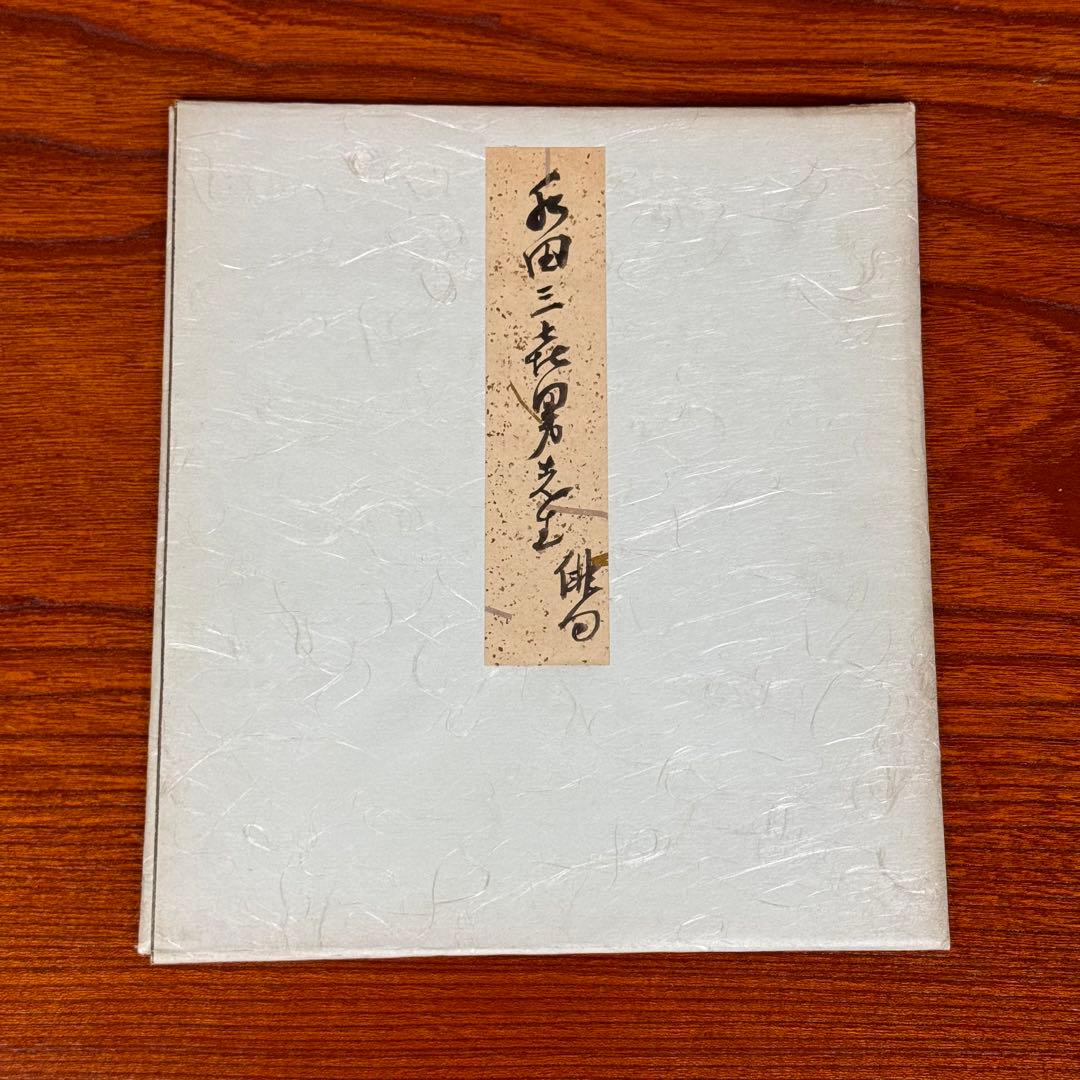 水田三喜男先生 俳句